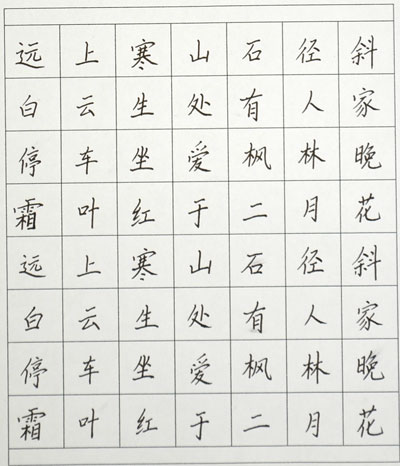 远上寒山石径斜
白云生处有人家
停车坐爱枫林晚
霜叶红于二月花
远上寒山石径斜
白云生处有人家
停车坐爱枫林晚
霜叶红于二月花